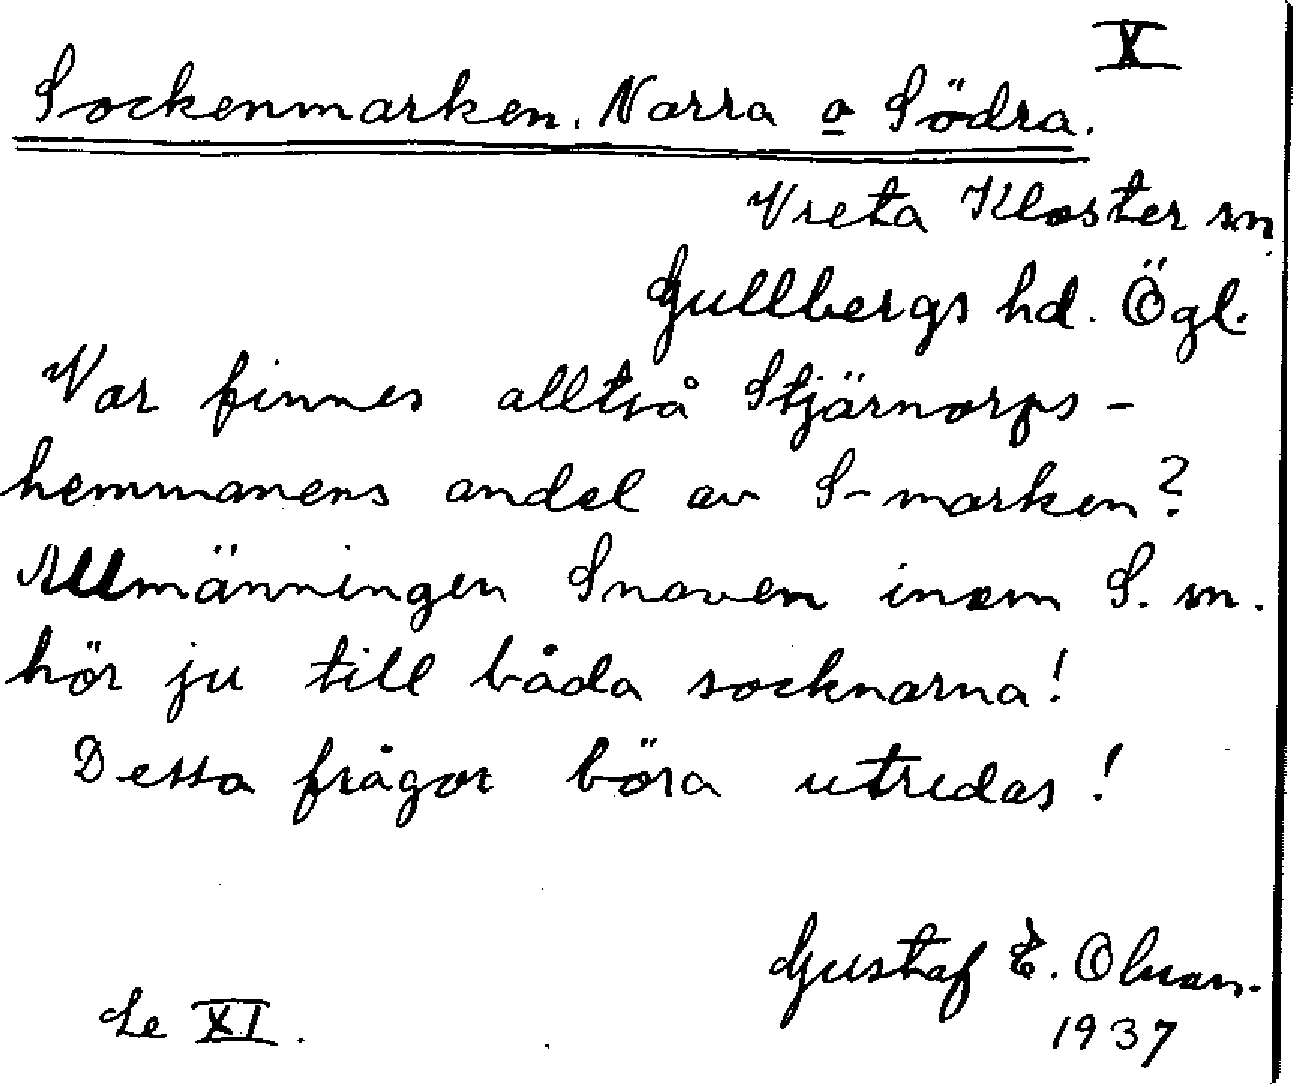 X
Sockenmarken. Norra o Södra.
Vreta Kloster sn
Gullbergs hd. Ögl.
Var finnes alltså Stjärnorps-
hemmanens andel av S-marken?
Allmänningen Snoven inom S. m.
hör ju till båda socknarna!
Dessa frågor böra utredas!
Gustaf E. Olsson.
Se XI.
1937